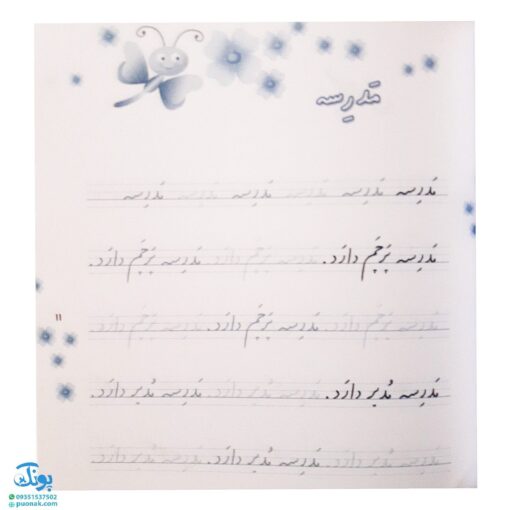 مَدرِسه
مَدرِسه مَدرِسه مَدرِسه مَدرِسه مَدرِسه مَدرِسه
مَدرِسه پَرچَم دارَد. مَدرِسه پَرچَم دارَد. مَدرِسه پَرچَم دارَد.
مَدرِسه پَرچَم دارَد. مَدرِسه پَرچَم دارَد. مَدرِسه پَرچَم دارَد.
۱۱
مَدرِسه مُدیر دارَد. مَدرِسه مُدیر دارَد. مَدرِسه مُدیر دارَد.
مَدرِسه مُدیر دارَد. مَدرِسه مُدیر دارَد. مَدرِسه مُدیر دارَد.
پونک
09351537502
puonak.com